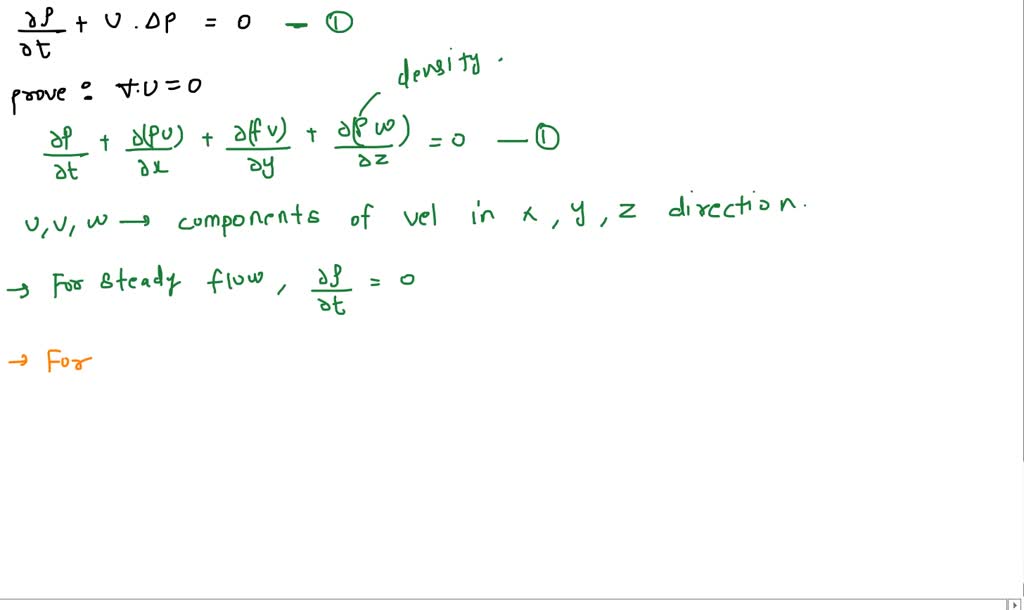 ∂ρ/∂t + U . Δρ = 0 — ①
prove : ∇·U = 0
density .
∂ρ/∂t + ∂(ρu)/∂x + ∂(ρv)/∂y + ∂(ρw)/∂z = 0 — ①
u, v, w → components of vel in x, y, z direction.
→ For steady flow, ∂ρ/∂t = 0
→ For